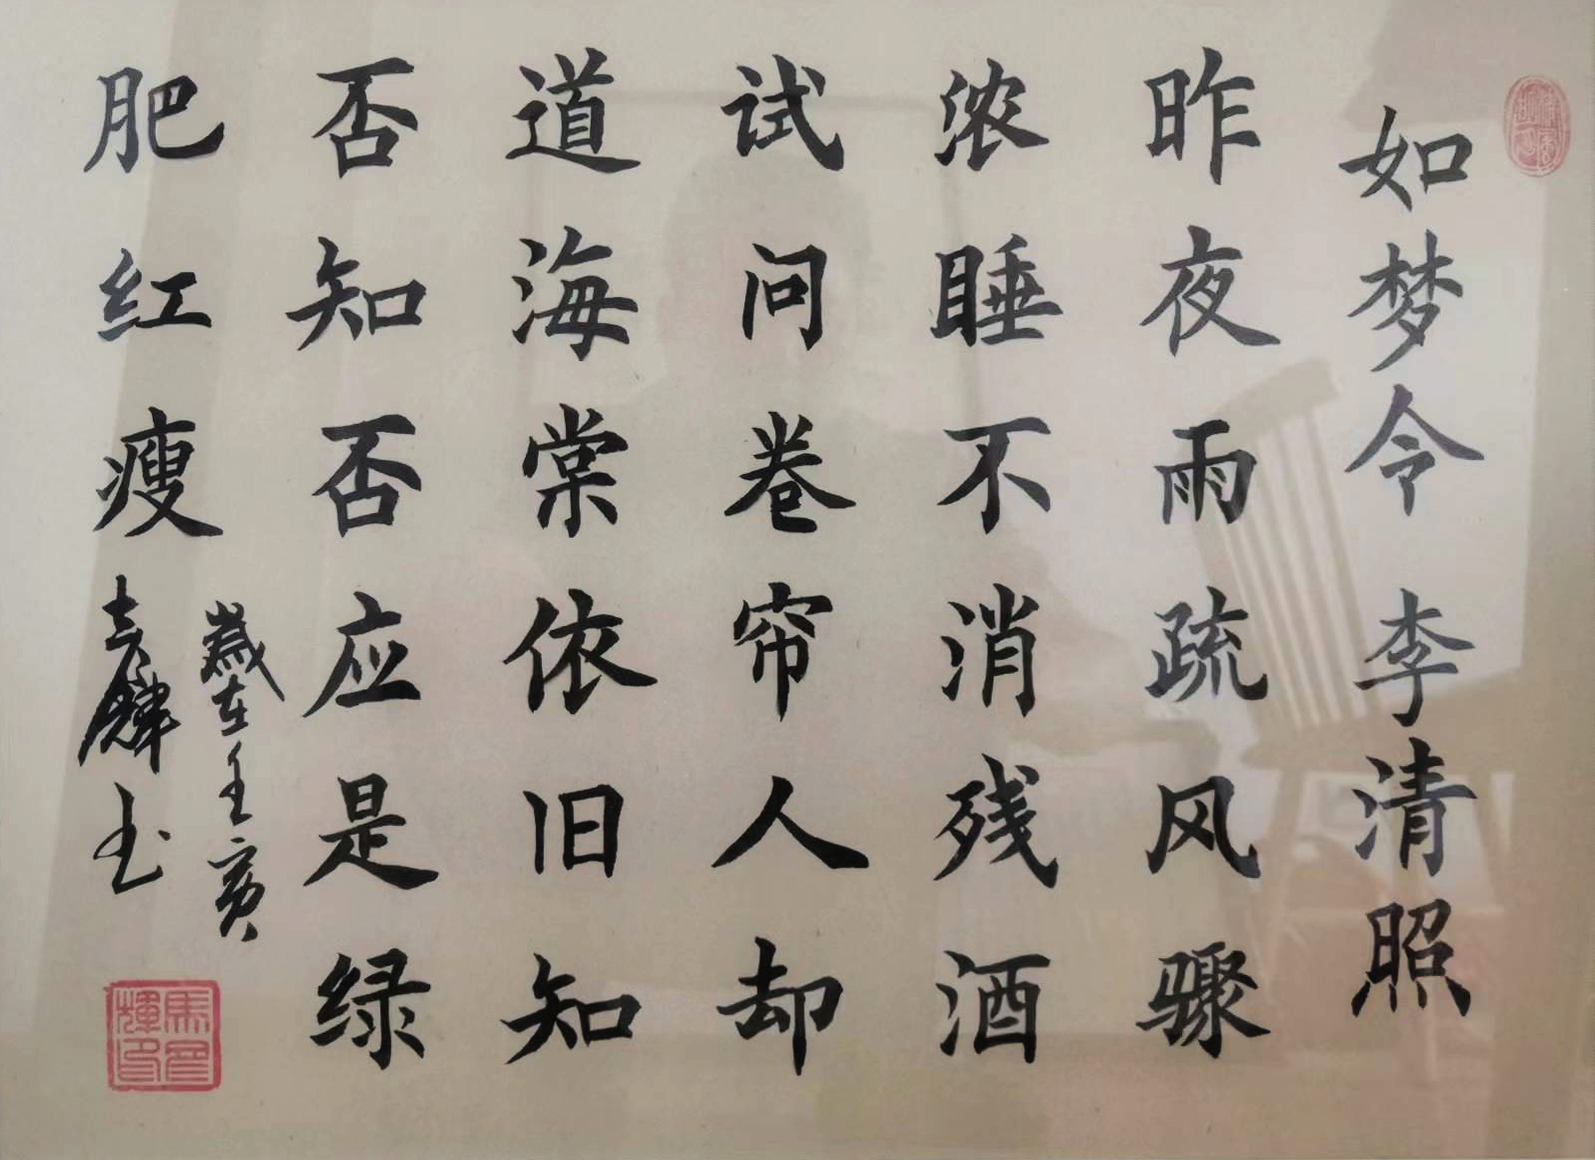 如梦令 李清照
昨夜雨疏风骤
浓睡不消残酒
试问卷帘人却
道海棠依旧知
否知否应是绿
肥红瘦
嵗在壬寅
书